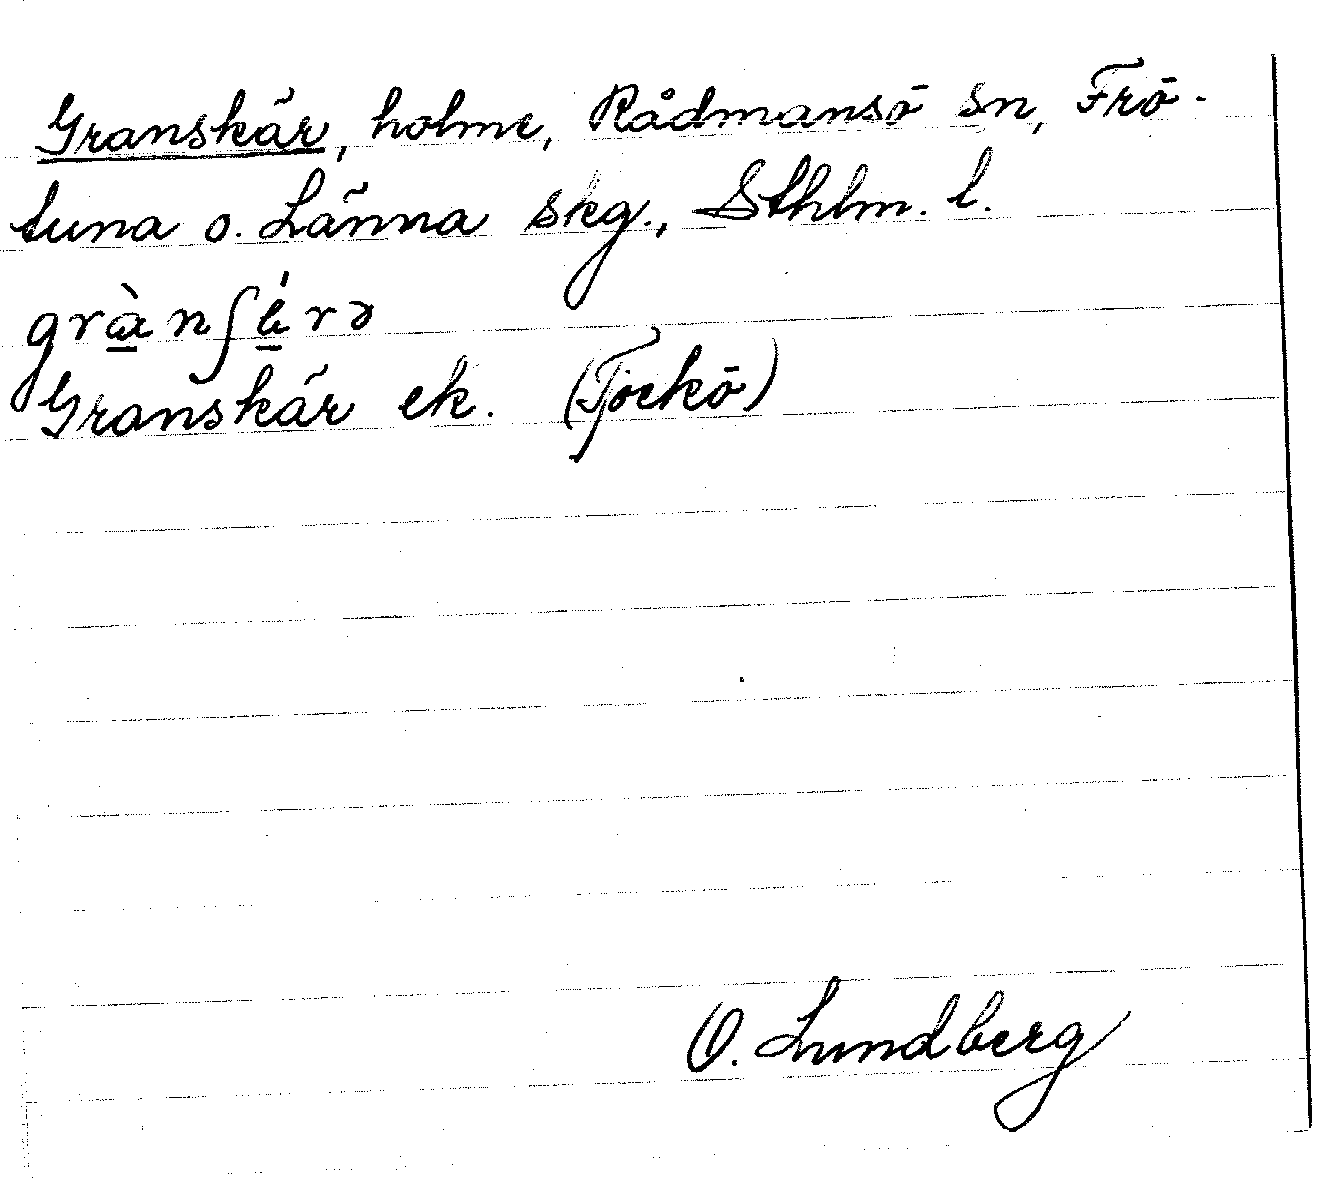 Granskär, holme, Rådmansö sn, Frö-
tuna o. Länna skg., Sthlm. l.
Granskär ek. (Tjockö)
O. Lundberg